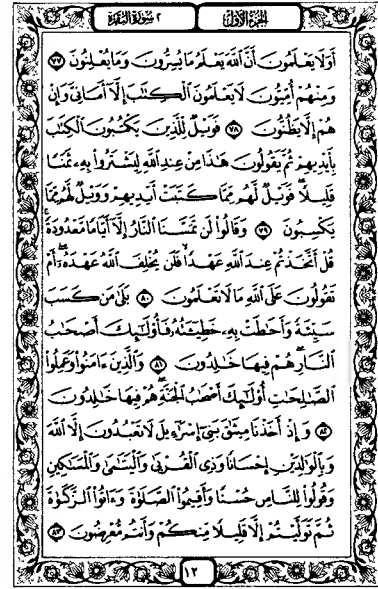 ٢ سورة البقرة
الجزء الأول
أَوَلَا يَعْلَمُونَ أَنَّ ٱللَّهَ يَعْلَمُ مَا يُسِرُّونَ وَمَا يُعْلِنُونَ ٧٧
وَمِنْهُمْ أُمِّيُّونَ لَا يَعْلَمُونَ ٱلْكِتَٰبَ إِلَّآ أَمَانِىَّ وَإِنْ
هُمْ إِلَّا يَظُنُّونَ ٧٨ فَوَيْلٌ لِّلَّذِينَ يَكْتُبُونَ ٱلْكِتَٰبَ
بِأَيْدِيهِمْ ثُمَّ يَقُولُونَ هَٰذَا مِنْ عِندِ ٱللَّهِ لِيَشْتَرُوا۟ بِهِۦ ثَمَنًا
قَلِيلًا ۖ فَوَيْلٌ لَّهُم مِّمَّا كَتَبَتْ أَيْدِيهِمْ وَوَيْلٌ لَّهُم مِّمَّا
يَكْسِبُونَ ٧٩ وَقَالُوا۟ لَن تَمَسَّنَا ٱلنَّارُ إِلَّآ أَيَّامًا مَّعْدُودَةً ۚ
قُلْ أَتَّخَذْتُمْ عِندَ ٱللَّهِ عَهْدًا فَلَن يُخْلِفَ ٱللَّهُ عَهْدَهُۥٓ ۖ أَمْ
تَقُولُونَ عَلَى ٱللَّهِ مَا لَا تَعْلَمُونَ ٨٠ بَلَىٰ مَن كَسَبَ
سَيِّئَةً وَأَحَٰطَتْ بِهِۦ خَطِيٓـَٔتُهُۥ فَأُو۟لَٰٓئِكَ أَصْحَٰبُ
ٱلنَّارِ ۖ هُمْ فِيهَا خَٰلِدُونَ ٨١ وَٱلَّذِينَ ءَامَنُوا۟ وَعَمِلُوا۟
ٱلصَّٰلِحَٰتِ أُو۟لَٰٓئِكَ أَصْحَٰبُ ٱلْجَنَّةِ ۖ هُمْ فِيهَا خَٰلِدُونَ
٨٢ وَإِذْ أَخَذْنَا مِيثَٰقَ بَنِىٓ إِسْرَٰٓءِيلَ لَا تَعْبُدُونَ إِلَّا ٱللَّهَ
وَبِٱلْوَٰلِدَيْنِ إِحْسَانًا وَذِى ٱلْقُرْبَىٰ وَٱلْيَتَٰمَىٰ وَٱلْمَسَٰكِينِ
وَقُولُوا۟ لِلنَّاسِ حُسْنًا وَأَقِيمُوا۟ ٱلصَّلَوٰةَ وَءَاتُوا۟ ٱلزَّكَوٰةَ
ثُمَّ تَوَلَّيْتُمْ إِلَّا قَلِيلًا مِّنكُمْ وَأَنتُم مُّعْرِضُونَ ٨٣
١٢